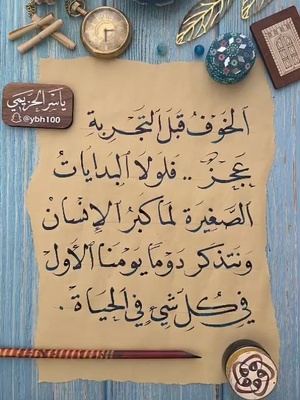 ياسر الحزيمي
@ybh100
الخَوفُ قَبلَ التَجرُبة
عَجزٌ .. فلولا البدَاياتُ
الصَغيرَة لمَا كبُرَ الإنسَانُ
ونَتذكر دَومًا يَومنَا الأول
في كُل شَيءٍ في الحيَاة .